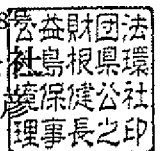 8
社
彦
公益財団法
人島根県環
境保健公社
理事長之印